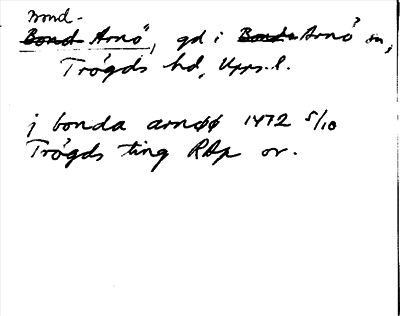 Bond-
Bond Arnö, gd i Bonds Arnö sn,
Trögds hd, Upps. l.
j bonda arnøø 1472 5/10
Trögds ting RAp or.